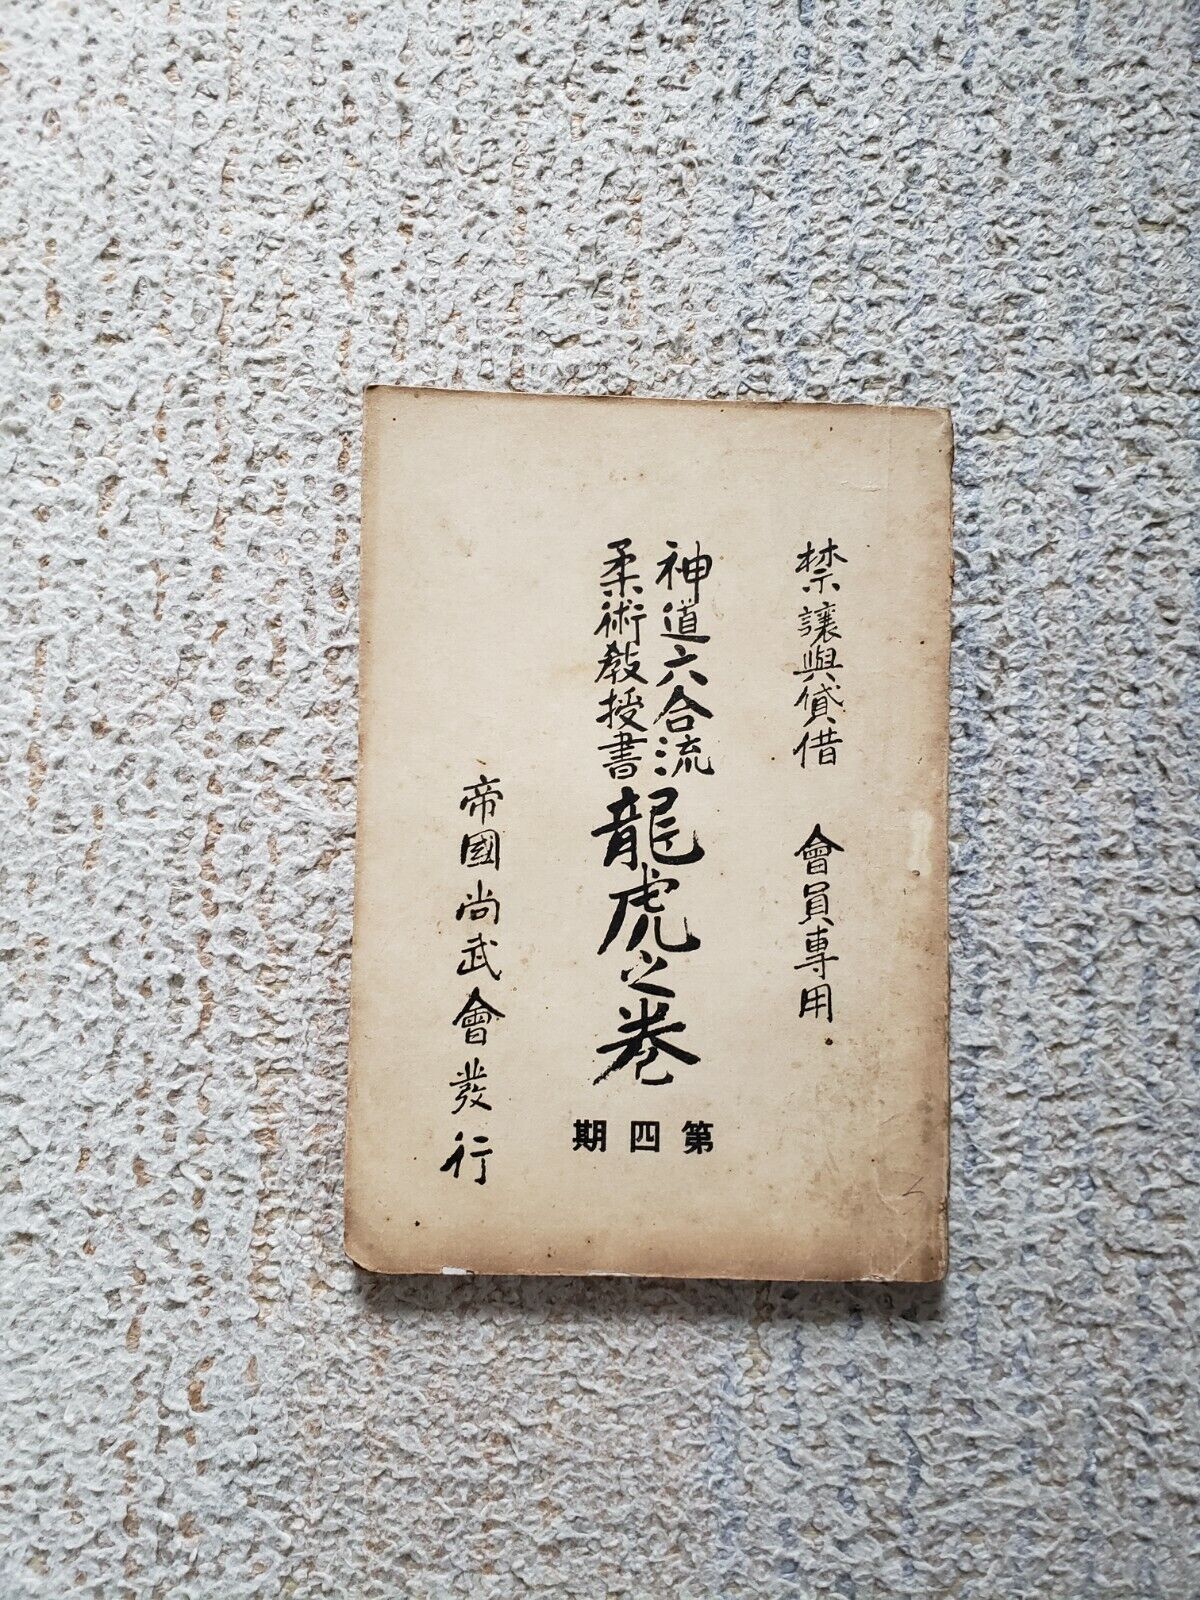 禁讓與貸借 會員専用
神道六合流
柔術教授書
龍虎之巻
第四期
帝國尚武會發行